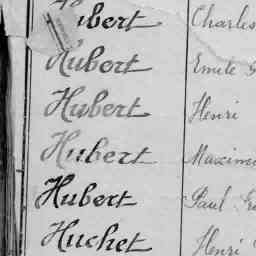 ubert Charles
Hubert Emile
Hubert Henri
Hubert Maxim
Hubert Paul
Huchet Henri